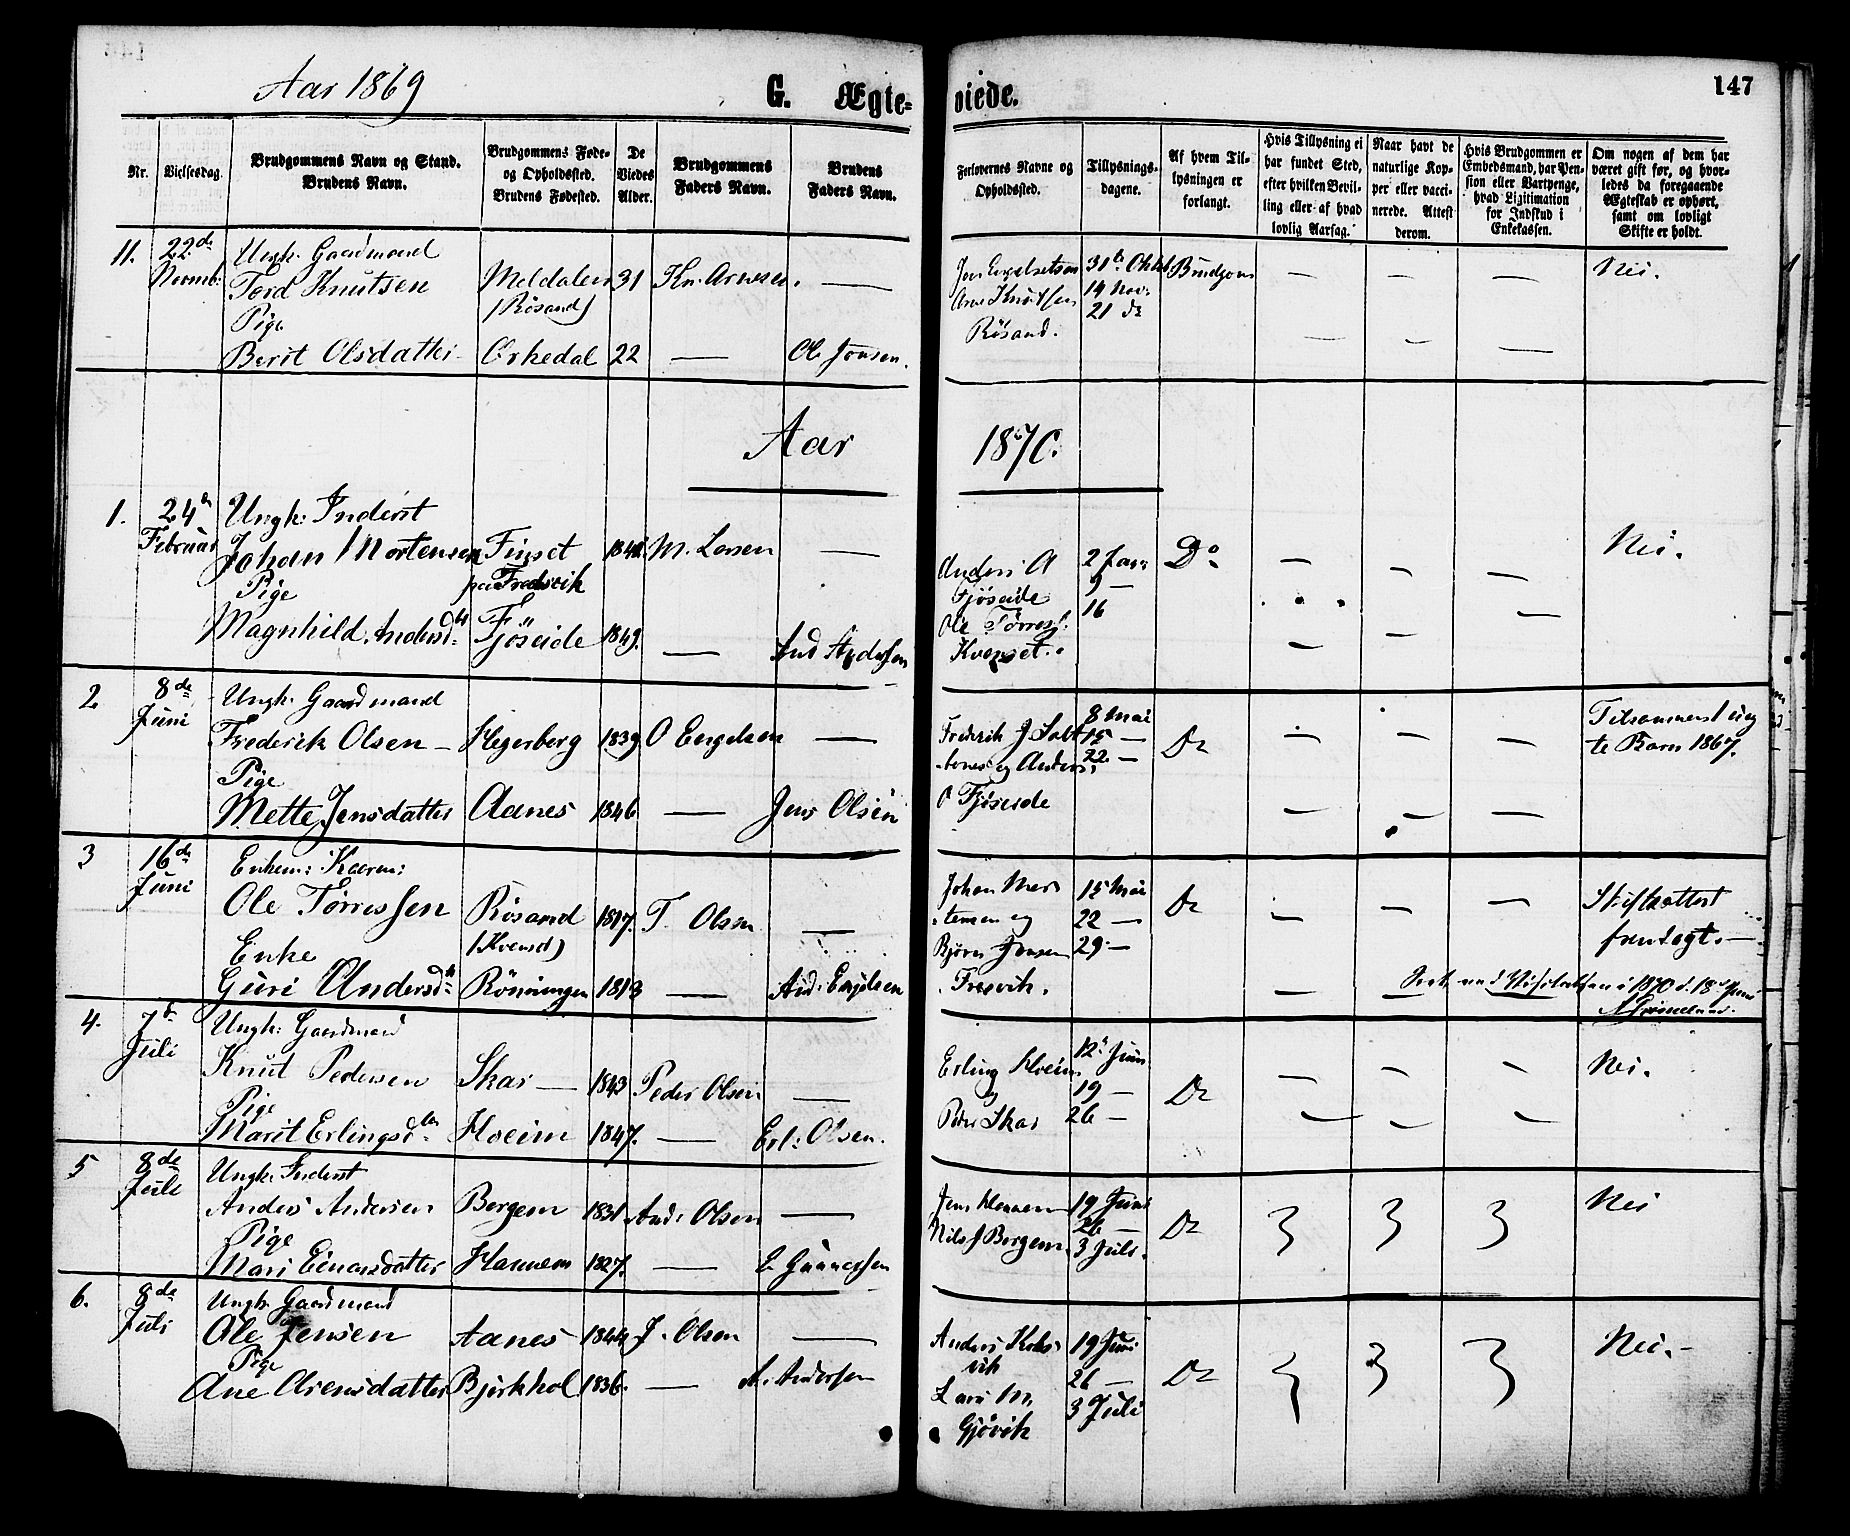 Aar 1869
G. Ægte=
viede.
147
Nr.
Vielsesdag.
Brudgommens Navn og Stand.
Brudens Navn.
Brudgommens Føde-
og Opholdssted.
Brudens Fødested.
De
Viedes
Alder.
Brudgommens
Faders Navn.
Brudens
Faders Navn.
Forlovernes Navne og
Opholdssted.
Tillysnings-
dagene.
Af hvem Til-
lysningen er
forlangt.
Hvis Tillysning ei
har fundet Sted,
efter hvilken Bevil-
ling eller af hvad
lovlig Aarsag.
Naar havt de
naturlige Kop-
per eller vacci-
nerede. Attest
derom.
Hvis Brudgommen er
Embedsmand, har Pen-
sion eller Vartpenge,
hvad Legitimation
for Indskud i
Enkekassen.
Om nogen af dem har
været gift før, og hvor-
ledes da foregaaende
Ægteskab er ophørt,
samt om lovligt
Skifte er holdt.
11.
22de
Novmb:
Ungk. Gaardmand
Tord Knutsen
Pige
Berit Olsdatter
Meldalen
(Rösand)
Orkedal
31
22
Kn. Arnesen.
—
—
Ole Jonsen.
Arne Knutsen
Rösand.
31te Oktob
14 Nov:
21 de
Brudgom
Nei.
Aar
1870.
1.
24de
Februar
Ungk: Inderst
Johan Mortensen
Pige
Magnhild Andersd:
Finset
paa Fredsvik
Fjöseide
1849.
M. Larsen
—
—
And Andersen
Anders A
Fjöseide
Ole Törress:
Kvenset.
2 Jan:
9 —
16
Do
Nei.
2
8de
Juni
Ungk. Gaardmand
Frederik Olsen
Pige
Mette Jensdatter
Hegerberg
Aanes
1839
1846
O Engelsen
—
—
Jens Olsen
Fredrik J. Salt
og Anders
O Fjöseide
8 Mai
15 —
22 —
Do
Tilsammen
Barn 1867.
3
16de
Juni
Enkem: Kaarm:
Ole Törressen
Enke
Guri Andersd
Rösand
(Kvensd)
Rönningen
1817.
1813
T. Olsen
—
—
And: Engelsen
Johan Mor
tensen og
Björn Jonsen
Fresvik.
15 Mai
22 —
29 —
Do
Skifteattest
fremlagt.
i 1870 d. 18 Juni
4.
7de
Juli
Ungk: Gaardmand
Knut Pedersen
Pige
Marit Erlingsd
Skar —
Hoeim
1843
1847.
Peder Olsen
—
—
Erl: Olsen.
Erling Hoeim
Peder Skar
12te Juni
19 —
26 —
Do
Nei.
5
8de
Juli
Ungk: Inderst
Anders Andersen
Pige
Mari Einarsdatter
Bergem
Hannem
1831
1827.
And: Olsen
—
—
E Gunnessen
Jens Hannem
Nils J Bergem.
19 Juni
26 —
3 Juli.
Do
Nei
6.
8de
Juli
Ungk. Gaardmand
Ole Jensen
Pige
Ane Arensdatter
Aanes
Bjerkhol
1844
1836.
J. Olsen
—
—
A. Andersen
Anders Kols
vik
Lars M.
Gjövik
19 Juni
26 —
3 Juli
Do
Nei.